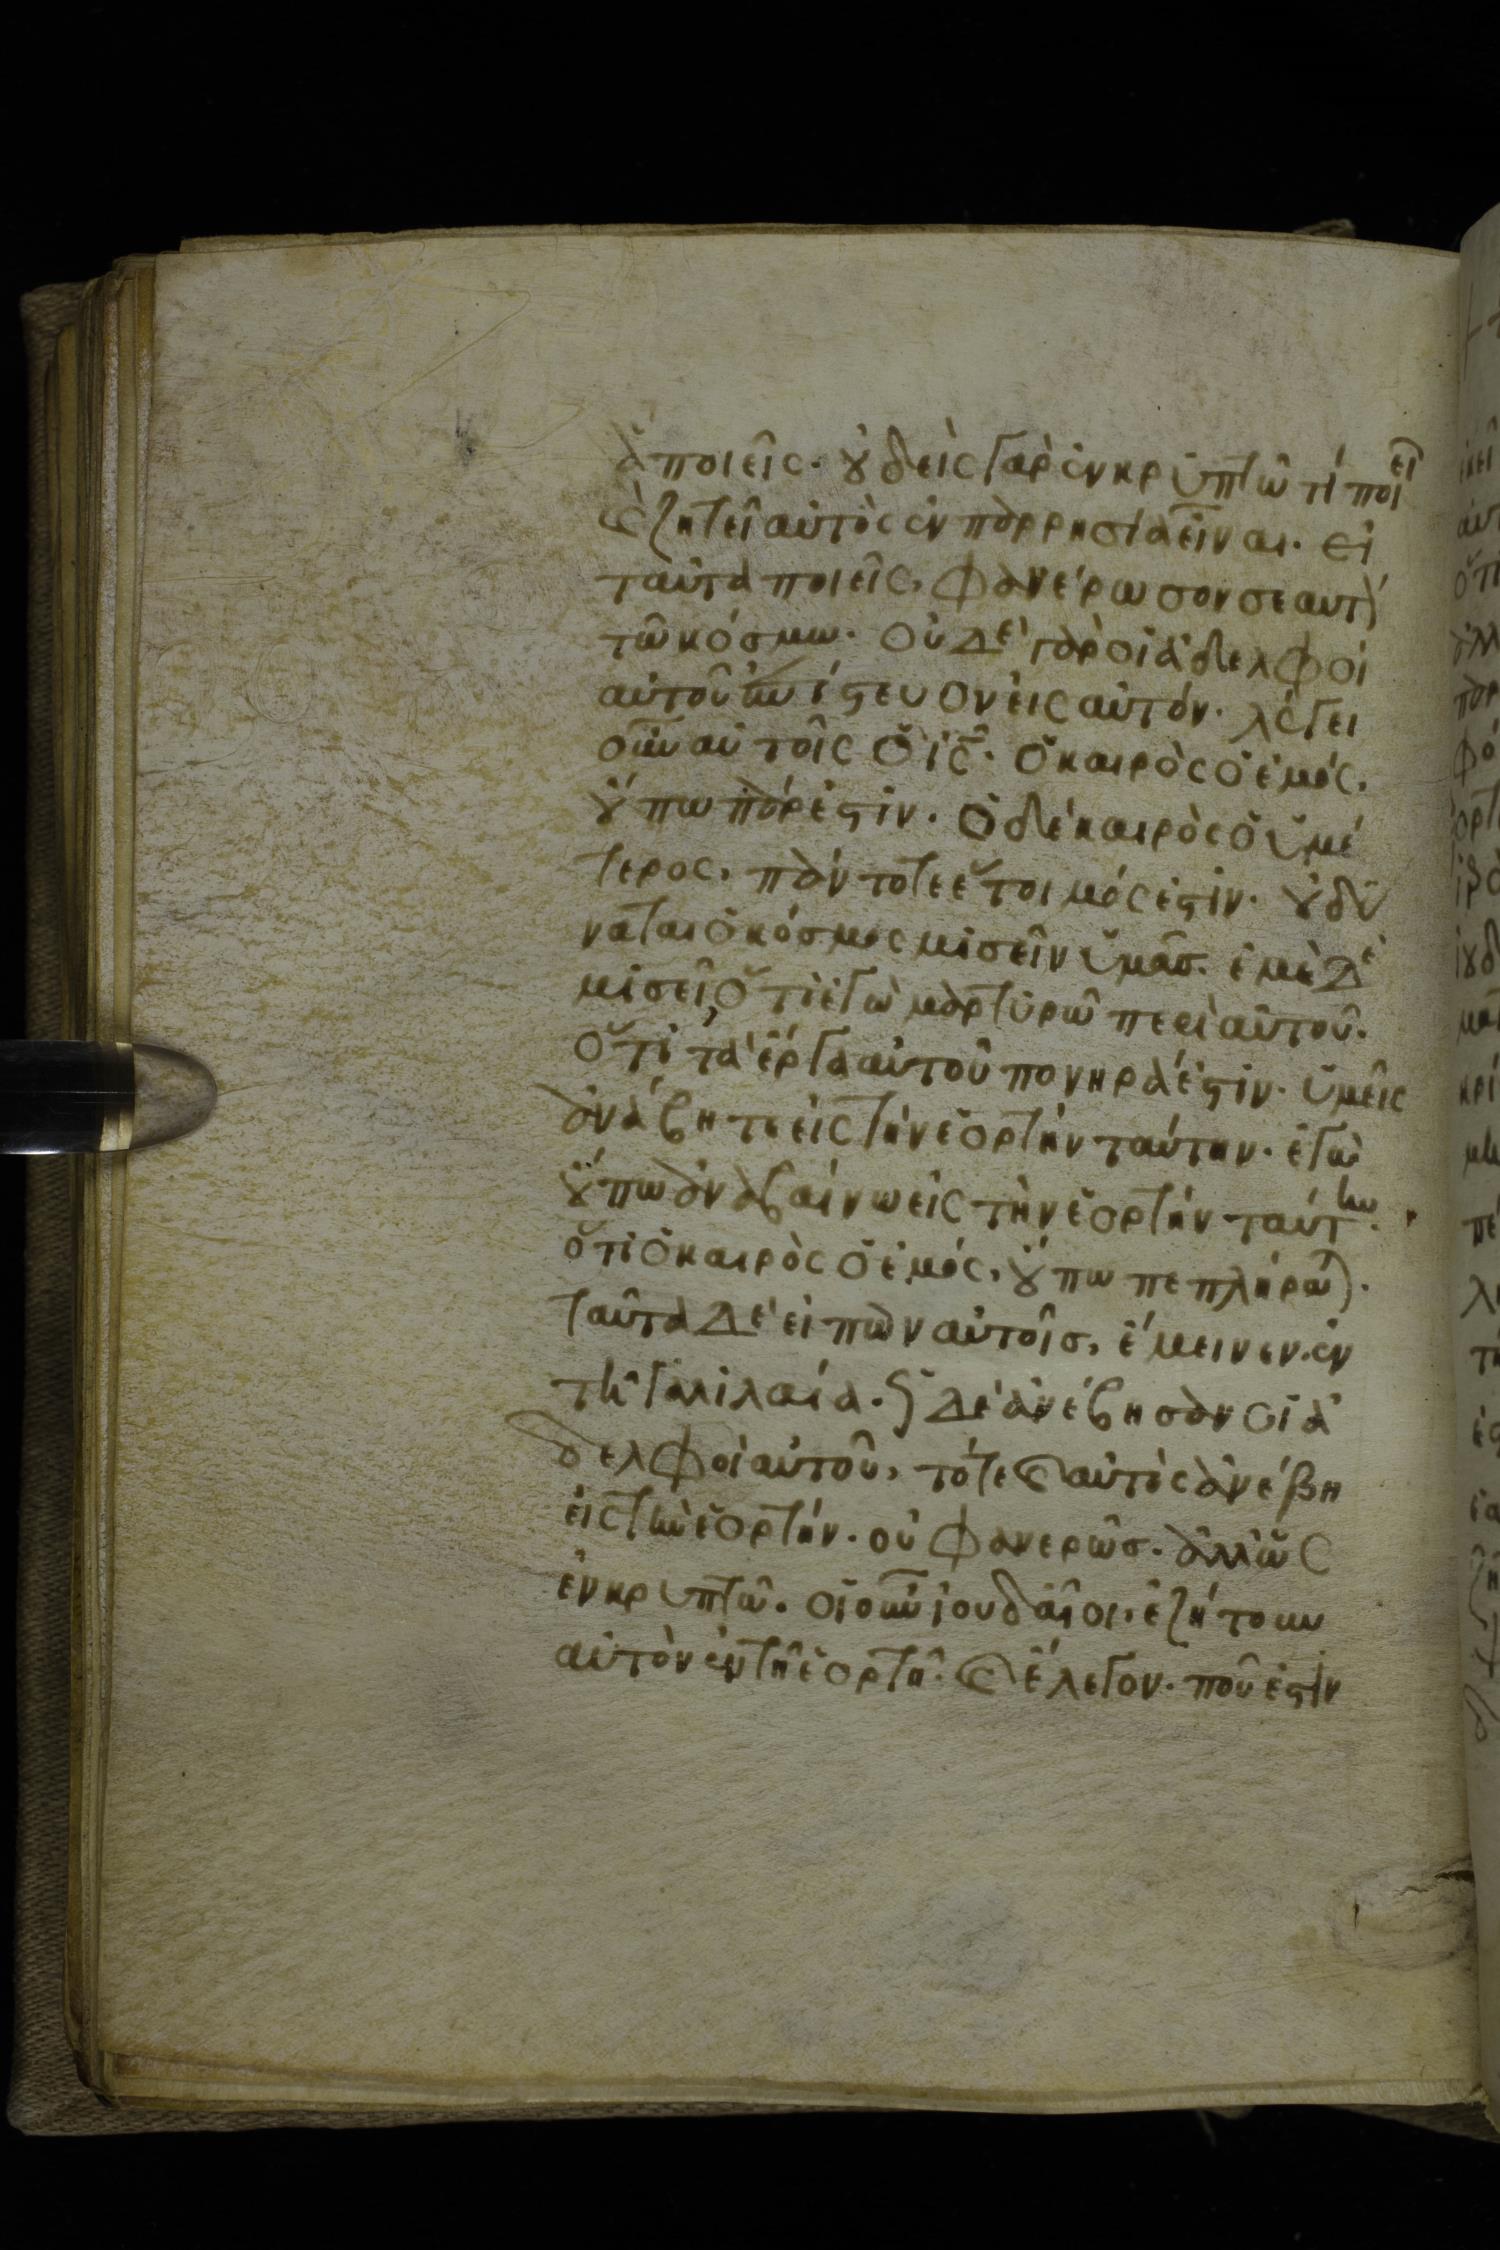 ἃ ποιεῖς· οὐδεὶς γὰρ ἐν κρυπτῶ τί ποιεῖ
καὶ ζητεῖ αὐτὸς ἐν παρρησία εἶναι· εἰ
ταῦτα ποιεῖς, φανέρωσον σεαυτὸν
τῶ κόσμω· οὐδὲ γὰρ οἱ ἀδελφοὶ
αὐτοῦ ἐπίστευον εἰς αὐτόν· λέγει
οὖν αὐτοῖς ὁ ἰς· ὁ καιρὸς ὁ ἐμὸς,
οὔπω πάρεστιν· ὁ δὲ καιρὸς ὁ ὑμέ
τερος, πάντοτε ἕτοιμός ἐστιν· οὐ δύ
ναται ὁ κόσμος μισεῖν ὑμᾶσ· ἐμὲ δὲ
μισεῖ, ὅτι ἐγὼ μαρτυρῶ περὶ αὐτοῦ·
ὅτι τὰ ἔργα αὐτοῦ πονηρά ἐστιν· ὑμεῖς
ἀνάβητε εἰς τὴν ἑορτὴν ταύτην· ἐγὼ
οὔπω ἀναβαίνω εἰς τὴν ἑορτὴν ταύτην·
ὅτι ὁ καιρὸς ὁ ἐμὸς, οὔπω πεπλήρωται·
ταῦτα δὲ εἰπὼν αὐτοῖσ, ἔμεινεν ἐν
τῆ γαλιλαία· ὡς δὲ ἀνέβησαν οἱ ἀ
δελφοὶ αὐτοῦ, τότε καὶ αὐτὸς ἀνέβη
εἰς τὴν ἑορτήν· οὐ φανερῶσ· ἀλλ' ὡς
ἐν κρυπτῶ· οἱ οὖν ἰουδαῖοι, ἐζήτουν
αὐτὸν ἐν τῆ ἑορτῆ· καὶ ἔλεγον· ποῦ ἐστιν